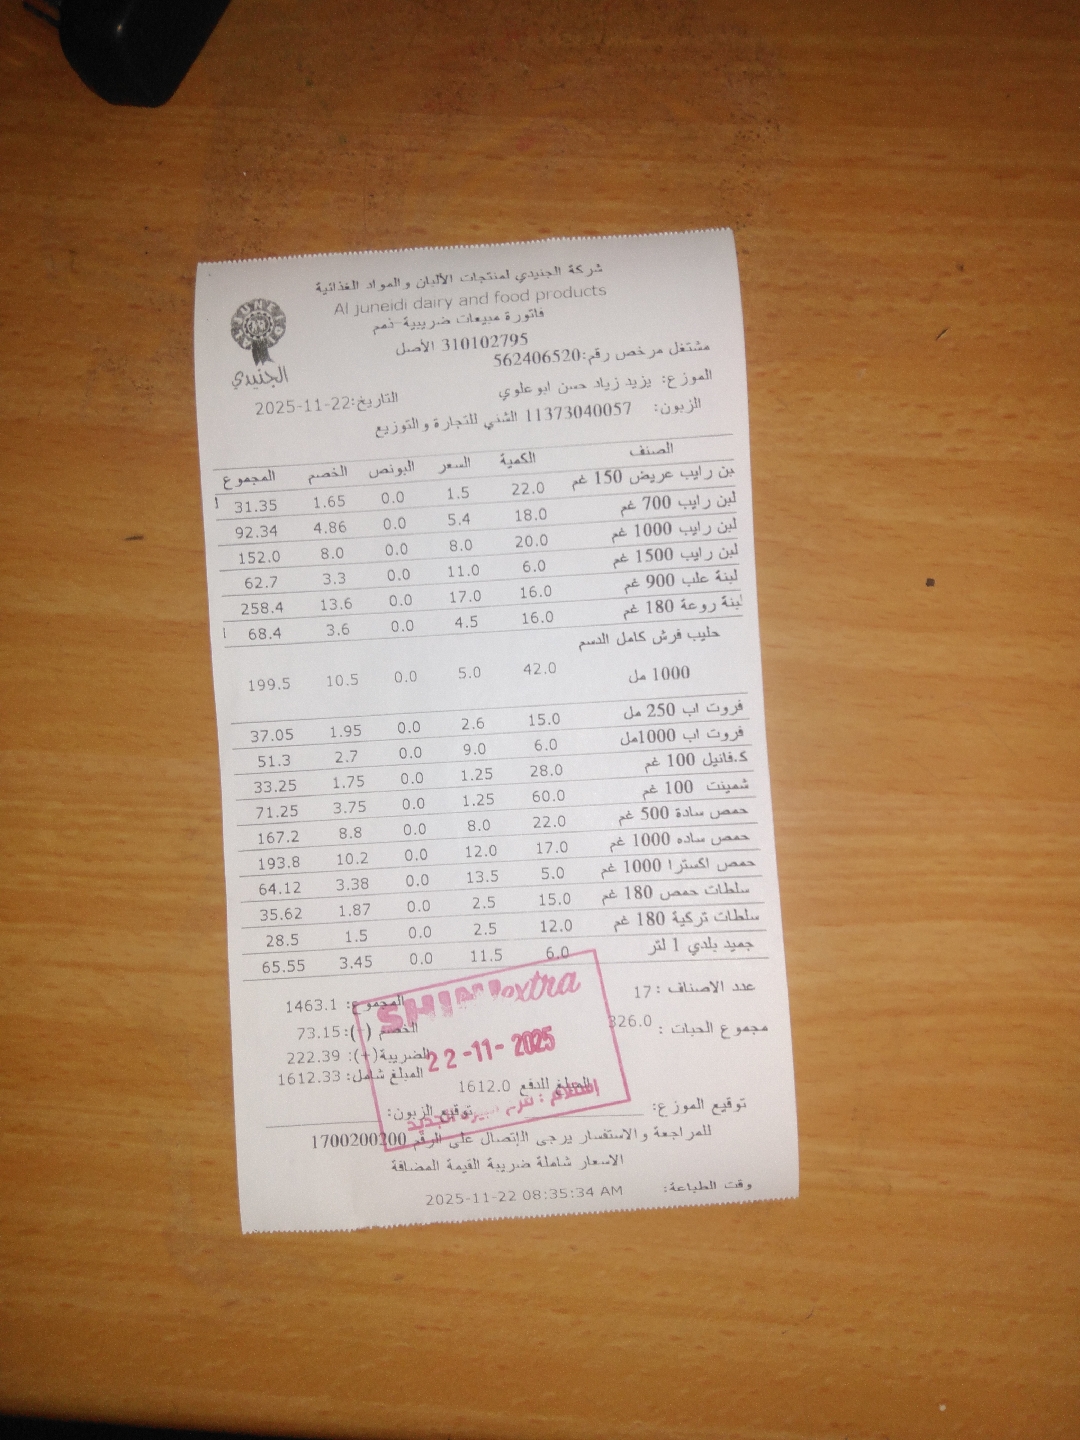 شركة الجنيدي لمنتجات الألبان والمواد الغذائية
Al juneidi dairy and food products
فاتورة مبيعات ضريبية-ذمم
310102795 الأصل
مشتغل مرخص رقم:562406520
الجنيدي
الموزع: يزيد زياد حسن ابو علوي
التاريخ:2025-11-22
الزبون: 11373040057 الشني للتجارة والتوزيع
الصنف الكمية السعر البونص الخصم المجموع
بن رايب عريض 150 غم 22.0 1.5 0.0 1.65 31.35
لبن رايب 700 غم 18.0 5.4 0.0 4.86 92.34
لبن رايب 1000 غم 20.0 8.0 0.0 8.0 152.0
لبن رايب 1500 غم 6.0 11.0 0.0 3.3 62.7
لبنة علب 900 غم 16.0 17.0 0.0 13.6 258.4
لبنة روعة 180 غم 16.0 4.5 0.0 3.6 68.4
حليب فرش كامل الدسم
1000 مل 42.0 5.0 0.0 10.5 199.5
فروت اب 250 مل 15.0 2.6 0.0 1.95 37.05
فروت اب 1000مل 6.0 9.0 0.0 2.7 51.3
ك.فانيل 100 غم 28.0 1.25 0.0 1.75 33.25
شمينت 100 غم 60.0 1.25 0.0 3.75 71.25
حمص سادة 500 غم 22.0 8.0 0.0 8.8 167.2
حمص ساده 1000 غم 17.0 12.0 0.0 10.2 193.8
حمص اكسترا 1000 غم 5.0 13.5 0.0 3.38 64.12
سلطات حمص 180 غم 15.0 2.5 0.0 1.87 35.62
سلطات تركية 180 غم 12.0 2.5 0.0 1.5 28.5
جميد بلدي 1 لتر 6.0 11.5 0.0 3.45 65.55
عدد الاصناف : 17
المجموع: 1463.1
extra
مجموع الحبات : 326.0
الخصم (-): 73.15
22-11-2025
الضريبة(+): 222.39
المبلغ شامل: 1612.33
المبلغ للدفع 1612.0
توقيع الموزع:
توقيع الزبون:
للمراجعة والاستفسار يرجى الإتصال على الرقم 1700200200
الاسعار شاملة ضريبة القيمة المضافة
وقت الطباعة: 2025-11-22 08:35:34 AM